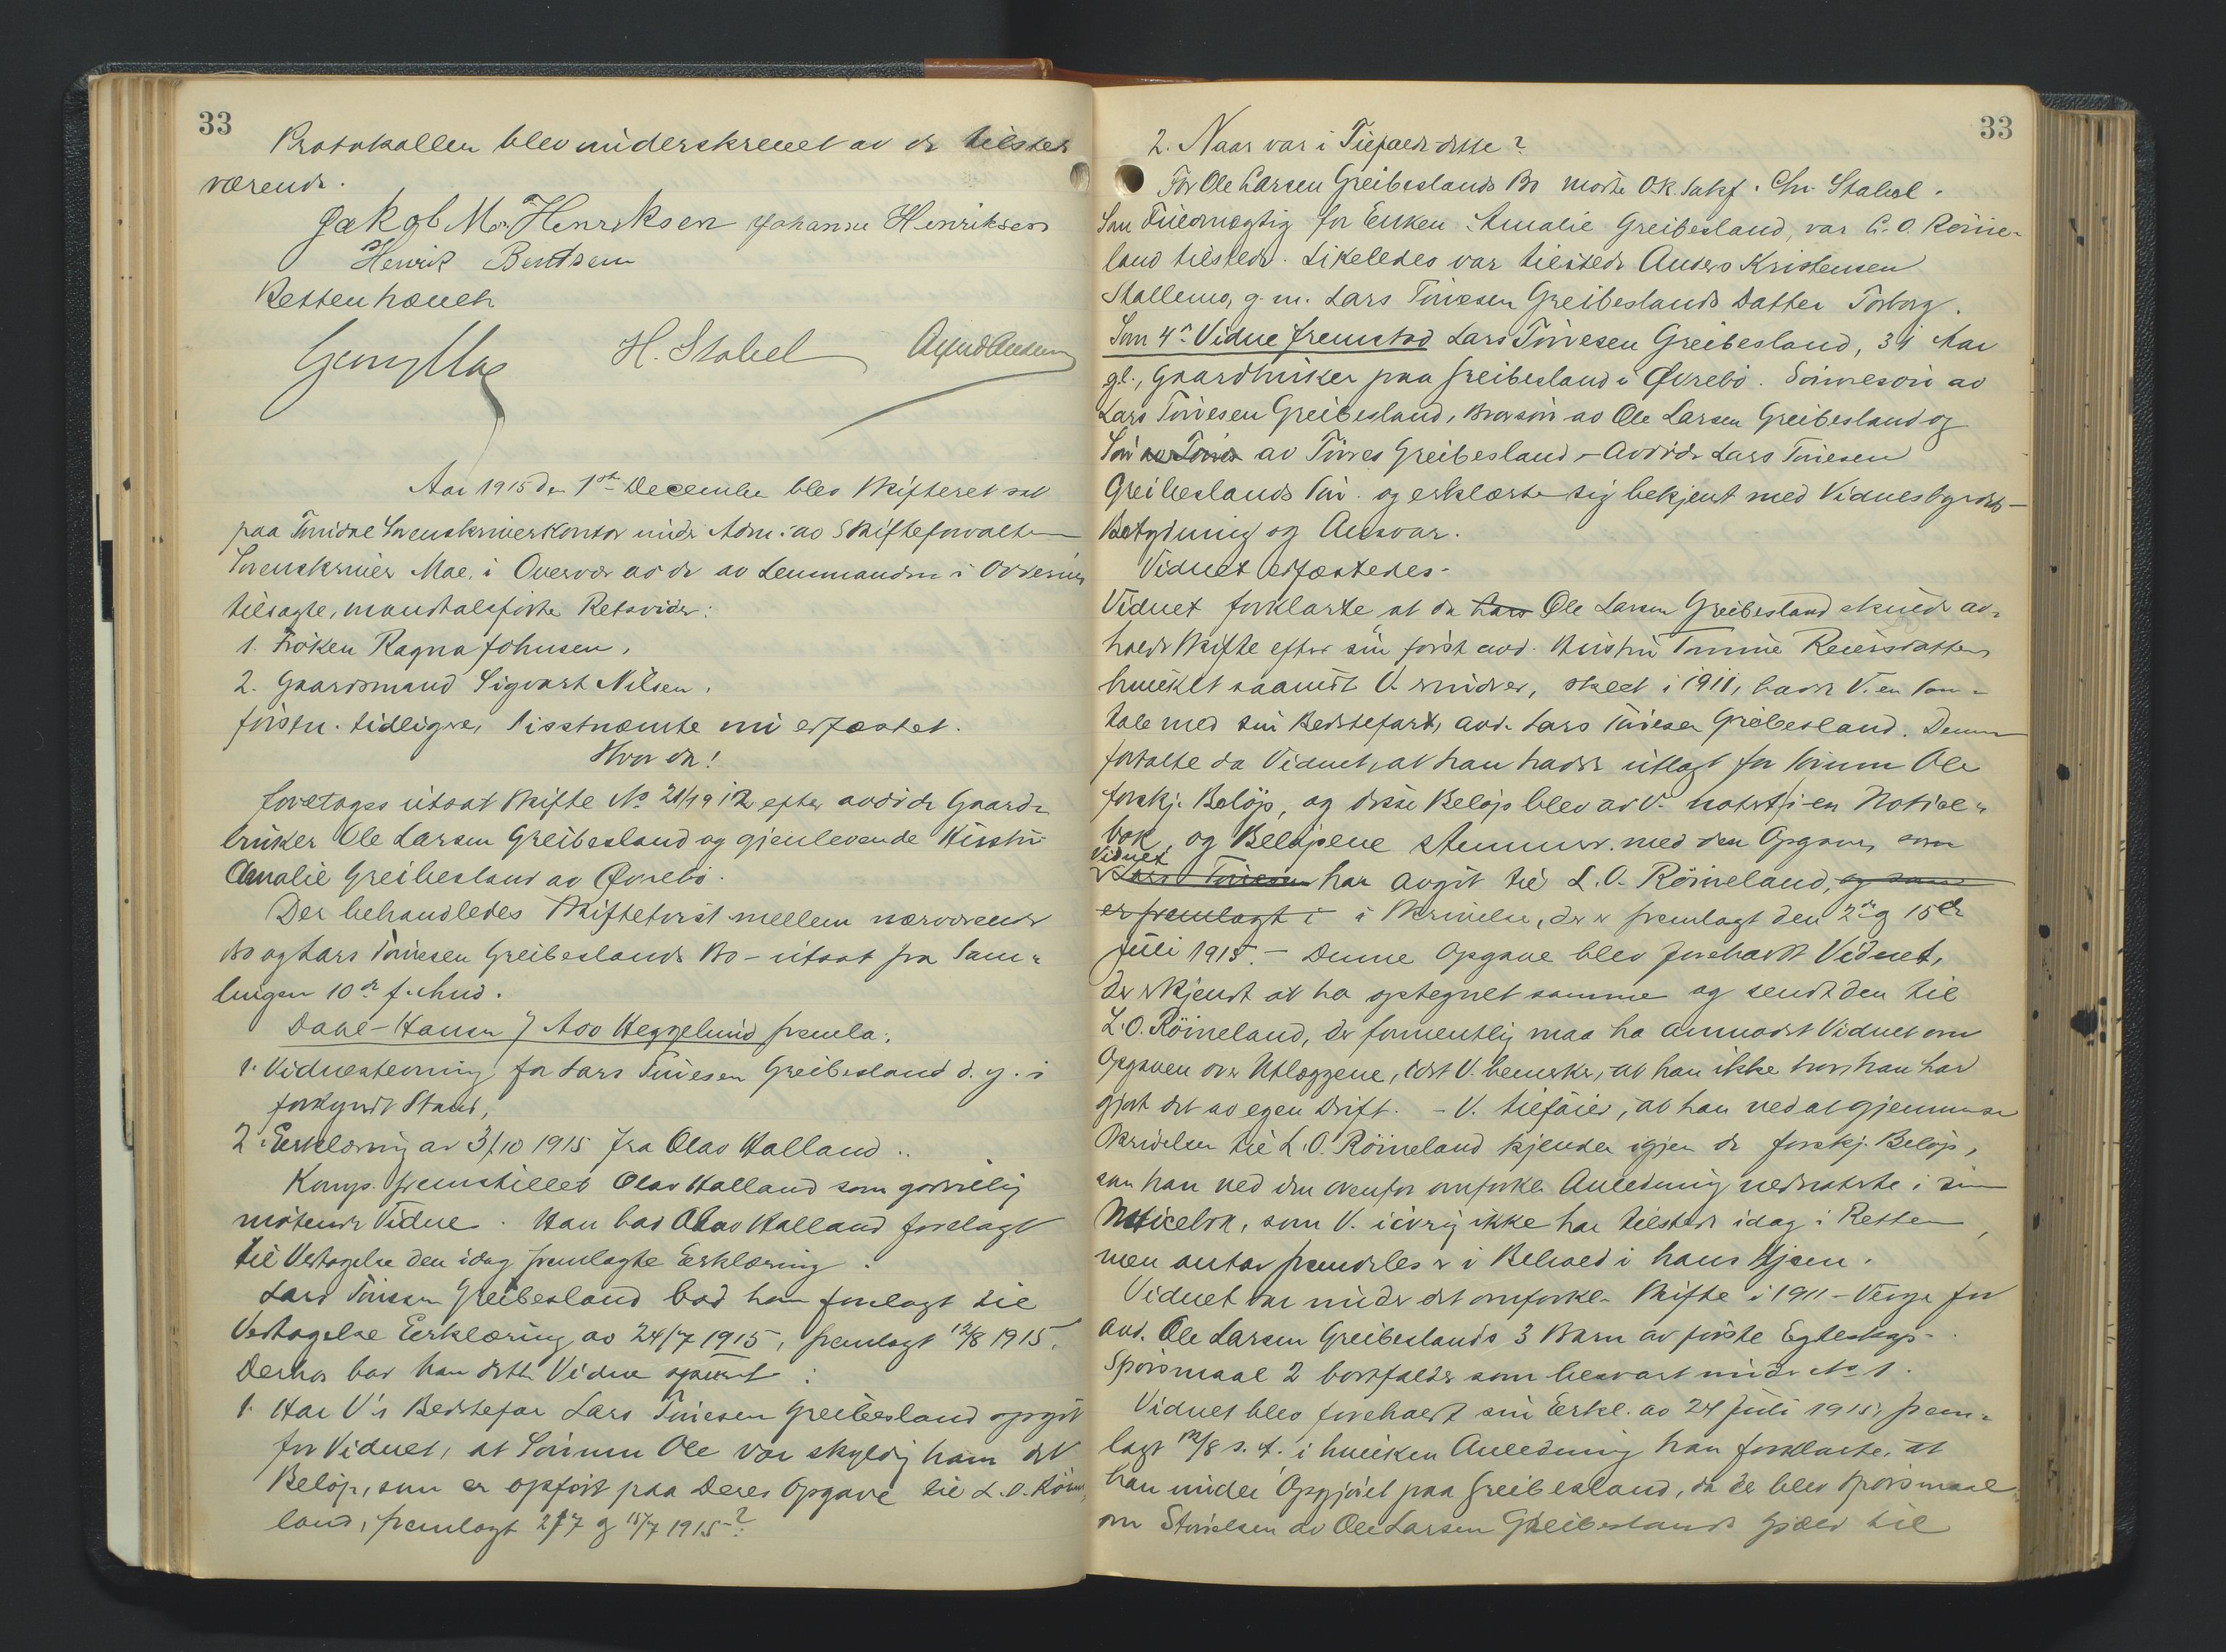 33
Protokollen blev underskrevet av de tilstede
værende.
Jakob M. Henriksen Johanne Henriksen
Henrik Bentsen
Retten hævet
H. Stabel
Aar 1915 den 1ste December blev Skifteret sat
paa Sorenskriverkontor under Adm: av Skifteforvalteren
Sorenskriver Mae, i Overvær av de av Lensmanden i Oddernes
tilsagte, mandtalsførte Retsvidner:
1. Frøken Ragna Johnsen,
2. Gaardmand Sigvart Nilsen,
førstn. tidligere, sisstnæmte nu edfæstet.
Hvor da!
foretages utsat Skifte No 21/1912 efter avdøde Gaard-
bruker Ole Larsen Greibesland og gjenlevende Hustru
Amalie Greibesland av Øvrebø.
Der behandledes Skiftetvist mellem nærværende
Bo og Lars Tørresen Greibeslands Bo - utsat fra Sam-
lingen 10de f. Mnd.
Dahl-Hansen f. Adv Heggelund fremla:
1. Vidnestevning for Lars Tørresen Greibesland d. y. i
forkyndt Stand,
2. Erklæring av 3/10 1915 fra Olav Halland..
Komp. fremstillet Olav Halland som godvillig
møtende Vidne. Han bad Olav Halland forelagt
til Vedtagelse den idag fremlagte Erklæring.
Lars Tørresen Greibesland bad han forelagt til
Vedtagelse Erklæring av 24/7 1915, fremlagt 12/8 1915.
Derhos bad han dette Vidne spurt:
1. Har V's Bedstefar Lars Tørresen Greibesland opgit
for Vidnet, at Sønnen Ole var skyldig ham det
Beløp, som er opført paa Deres Opgave til L. O. Røine-
land, fremlagt 2/7 og 15/7 1915-?
33
2. Naar var i Tilfælde disse?
For Ole Larsen Greibeslands Bo møtte O.R. Sakf. Chr. Stabel.
Som Fuldmægtig for Enken Amalie Greibesland, var L. O. Røine-
land tilstede. Likeledes var tilstede Anders Kristensen
Stallemo, g. m. Lars Tørresen Greibeslands Datter Torborg.
Som 4de Vidne fremstod Lars Tørresen Greibesland, 31 Aar
gl., Gaardbruker paa Greibesland i Øvrebø. Sønnesøn av
Lars Tørresen Greibesland, Brorsøn av Ole Larsen Greibesland og
Søn av Tørres av Tørres Greibesland - Avdøde Lars Tørresen
Greibeslands Søn. og erklærte sig bekjent med Vidnesbyrdets
Betydning og Ansvar.
Vidnet edfæstedes.
Vidnet forklarte, at da hans Ole Larsen Greibesland skulde av-
holde Skifte efter sin først avd. Hustru Tomine Reiersdatter
hvilket saavidt V. mindes, skeet i 1911, hadde V. en Sam-
tale med sin Bedstefar, avd. Lars Tørresen Greibesland. Denne
fortalte da Vidnet, at han hadde utlagt for Sønnen Ole
forskj. Beløp, og disse Beløp blev av V. notert i en Notice-
bok, og Beløpene stemmer med den Opgave, som
Vidnet
Lars Tørresen har avgit til L. O. Røineland, og som
er fremlagt i i Skrivelse, der er fremlagt den 2den og 15de
Juli 1915. - Denne Opgave blev foreholdt Vidnet,
der erkjendt at ha optegnet samme og sendt den til
L. O. Røineland, der formentlig maa ha anmodet Vidnet om
Opgaven over Utlæggene, idet V. bemerker, at han ikke tror, han har
gjort det av egen Drift. - V. tilføier, at han ved at gjennemse
Skrivelsen til L. O. Røineland kjender igjen de forskj. Beløp,
som han ved den ovenfor omforkl. Anledning nednoterte i sin
Noticebok, som V. iøvrig ikke har tilstede idag i Retten,
men antar fremdeles er i Behold i hans Hjem.
Vidnet var under det omforkl. Skifte i 1911 - Verge for
avd. Ole Larsen Greibeslands 3 Barn av første Egteskap.
Spørsmaal 2 bortfalder som besvart under No 1.
Vidnet blev foreholdt sin Erkl. av 24 Juli 1915, frem-
lagt 12/8 s. A. i hvilken Anledning han forklarte, at
han under Opgjøret paa Greibesland, da der blev spørsmaal
om Størrelsen av Ole Larsen Greibeslands Gjæld til